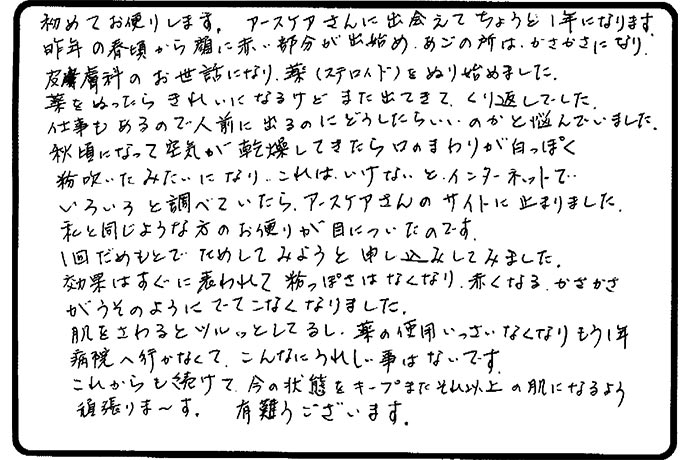 初めてお便りします。 アースケアさんに出会えてちょうど1年になります。
昨年の春頃から顔に赤い部分が出始め、あごの所は、かさかさになり、
皮膚科のお世話になり、薬(ステロイド)をぬり始めました。
薬をぬったらきれいになるけどまた出てきて、くり返しでした。
仕事もあるので人前に出るのにどうしたらいいのかと悩んでいました。
秋頃になって空気が乾燥してきたら口のまわりが白っぽく
粉吹いたみたいになり、これは、いけないと、インターネットで
いろいろと調べていたら、アースケアさんのサイトに止まりました。
私と同じような方のお便りが目についたのです。
1回だめもとでためしてみようと申し込みしてみました。
効果はすぐに表われて粉っぽさはなくなり、赤くなる、かさかさ
がうそのようにでてこなくなりました。
肌をさわるとツルッとしてるし、薬の使用いっさいなくなりもう1年
病院へ行かなくて、こんなにうれしい事はないです。
これからも続けて、今の状態をキープまたそれ以上の肌になるよう
頑張りま〜す。 有難うございます。